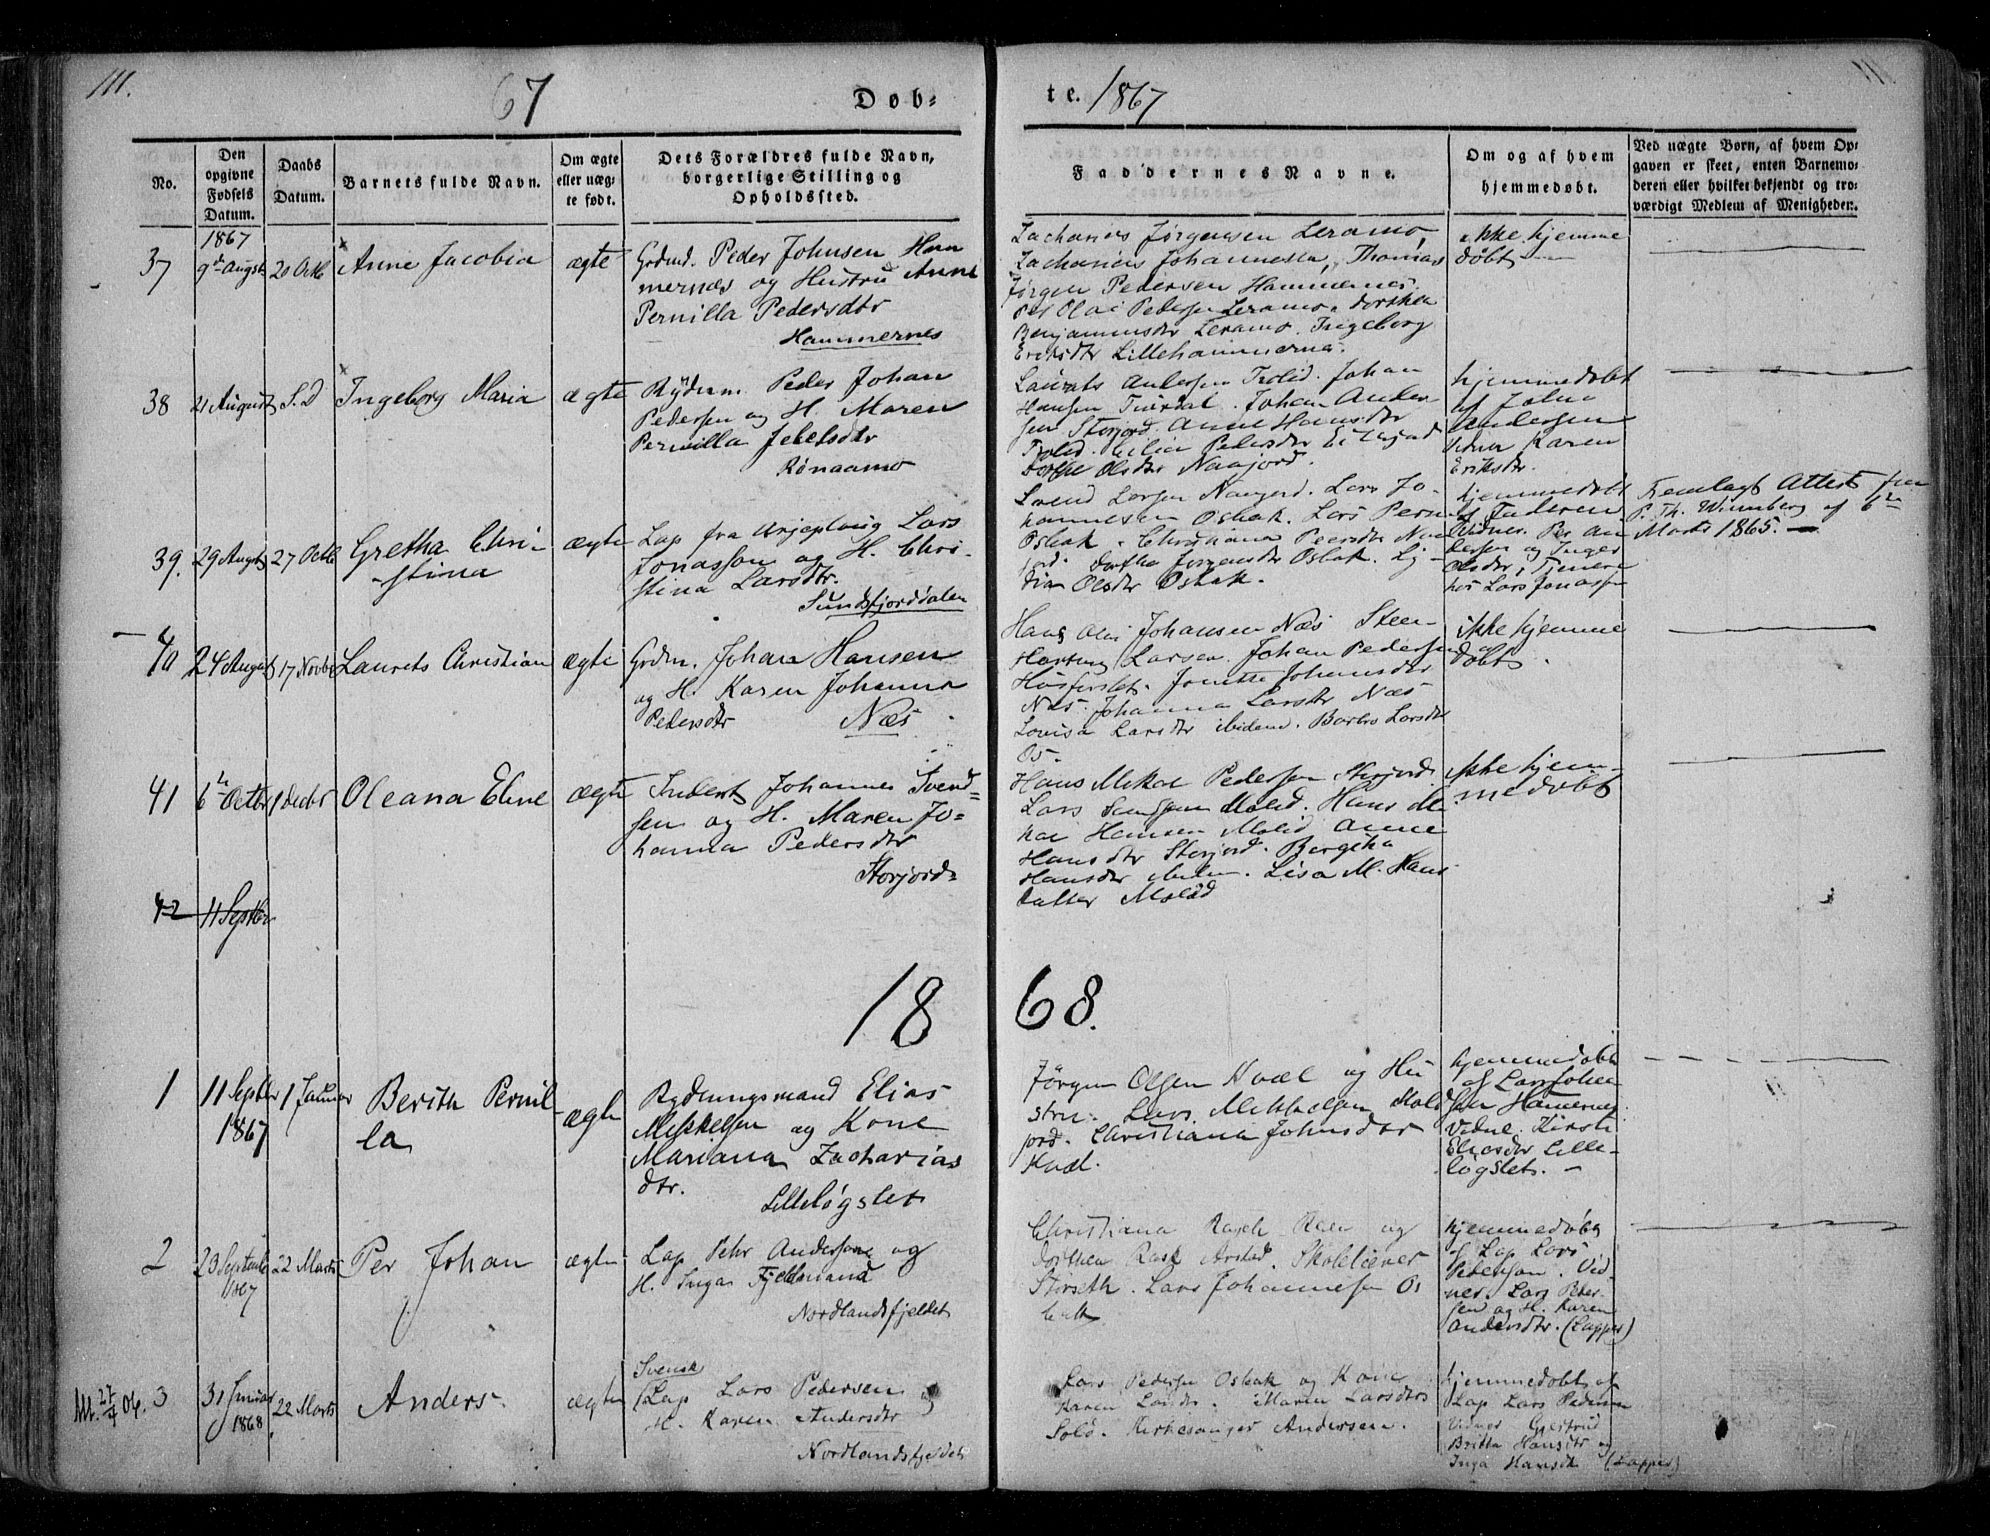 111.
67
Døb-
te. 1867
No.
Den opgivne Fødsels Datum.
Daabs Datum.
Barnets fulde Navn.
Om ægte eller uægte født.
Dets Forældres fulde Navn, borgerlige Stilling og Opholdssted.
Faddernes Navne.
Om og af hvem hjemmedøbt.
Ved uægte Børn, af hvem Opgaven er skeet, enten Barnemoderen eller hvilket bekjendt og troværdigt Medlem af Menigheden.
1867
37
9d Augst
20 Octb
Anne Jacobia
ægte
Grdmd. Peder Johnsen Ham
mernæs og Hustru Anne
Pernilla Pedersdtr
Hammernes
Zacharias Jørgensen Leramo,
Zacharias Johannesen, Thomas
Jørgen Pedersen Hammernes.
Per Olai Pedersen Leramo. Dorthea
Benjaminsdtr Leramo. Ingeborg
Eriksdtr Lillehammernæs.
ikke hjemme
døbt
38
21 August
S. D
Ingeborg Maria
ægte
Rydnm. Peder Johan
Pedersen og H. Maren
Pernilla
Rønaamo
Laurits Andersen Trolid. Johan
Hansen. Johan Ander-
sen Storjord. Anne Hansdtr
Trolid. Pedersdtr
Dorthe Olsdtr Naajord.
hjemmedøbt
af John
Andersen
Vidner Karen
Eriksdtr.
39.
29 Augst
27 Octb
Gretha Chri-
stina
ægte
Lap fra Arjeploug Lars
Jonasson og H. Chri-
stina Larsdtr.
Sundsfjorddalen
Svend Larsen Naajord. Lars Jo-
hannesen Osbak. Lars
Osbak. Christiana Peersdtr Naa
jord. Dorthe Jørgensdtr Osbak. Ly-
dia Olsdtr Osbak.
hjemmedøbt
af Faderen
Vidner. Per An
dersen og Inger
Olsdtr, Tjenere
hos Lars Jonassen
Fremlagt Attest fra
P. Th. Winnberg af 6te
Marts 1865.
40
24 August
17 Novbr
Laurets Christian
ægte
Grdm. Johan Hansen
og H. Karen Johanna
Pedersdtr Næs
Hans Olai Johansen Næs Steen-
Hartvig Larsen. Johan Pedersen
Husforslet. Jonette Johansdtr
Næs. Johanna Larsdtr Næs
Lovisa Larsdtr ibidem. Barbro Larsdtr
Os.
ikke hjemme
døbt.
41
6te Octbr
1 Decbr
Oleana Eline
ægte
Inderst Johannes Svend-
sen og H. Maren Jo-
hanna Pedersdtr
Storjord
Hans Mikal Pedersen Storjord
Lars Molid. Hans Mi
kal Hansen Molid Anne
Hansdtr Storjord. Bergitha
Hansdtr ibidem. Lisa M. Hans
datter Molid
ikke hjem-
medøbt
42
11 Septbr
18
68.
1
11 Septbr
1867
1 Januar
Berith Pernil-
la
ægte
Rydningsmand Elias
Mikkelsen og Kone
Mariana Zacharias
dtr.
Lilleløgslet
Jørgen Olsen Kvæl og Hu
stru. Lars Mikkelsen Stold
jord. Christiana Johnsdtr
Kvæl.
hjemmedøbt
af Lars Johan
sen Hamernes
Vidne. Kirsti
Eliasdtr Lille-
løgslet.
2
23 Septembr
1867
22 Marts
Per Johan
ægte
Lap Pehr Anderson og
H. Inga Fjellmand
Nordlandsfjeldet
Christiana Rasch Roen og
Dorthea Rask Arstad. Skolelærer
Storseth. Lars Johannesen Os
bakk
hjemmedøbt
af Lap Lars
Pederson. Vid-
ner Lars Peder-
sen og H. Karen
Andersdtr. (Lapper)
Att. 27/7 06.
3
31 Januar
1868.
22 Marts
Anders
ægte
Svensk
(Lap Lars Pedersen og
H. Karen Andersdtr
Nordlandsfjeldet
Lars Pedersen Osbak og Kone
Karen Larsdtr. Maren Larsdtr
Solø. Kirkesanger Andersen.
hjemmedøbt af
Lap Lars Pedersen
Vidner Gjertrud
Britha Hansdtr og
Inga Hansdtr (Lapper)